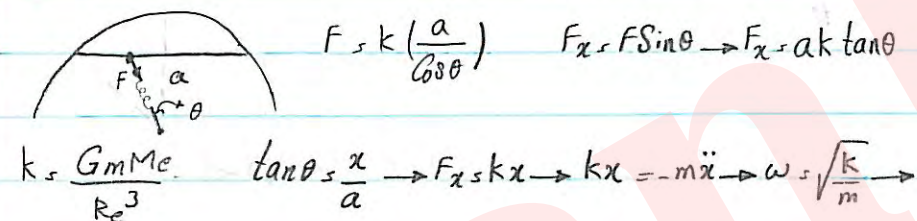 F = k (a/Cosθ) Fx = F Sinθ → Fx = ak tanθ
F a θ
k = GmMe/Re³ tanθ = x/a → Fx = kx → kx = -mẍ → ω = √(k/m) →